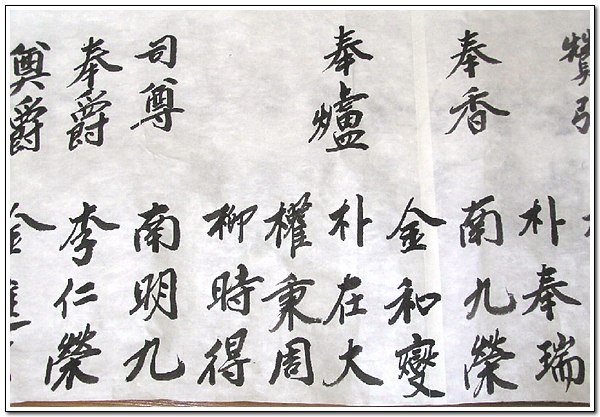 贊引
朴奉瑞
奉香 南九榮
金和燮
奉爐 朴在大
權秉周
柳時得
司尊 南明九
奉爵 李仁榮
奠爵 金